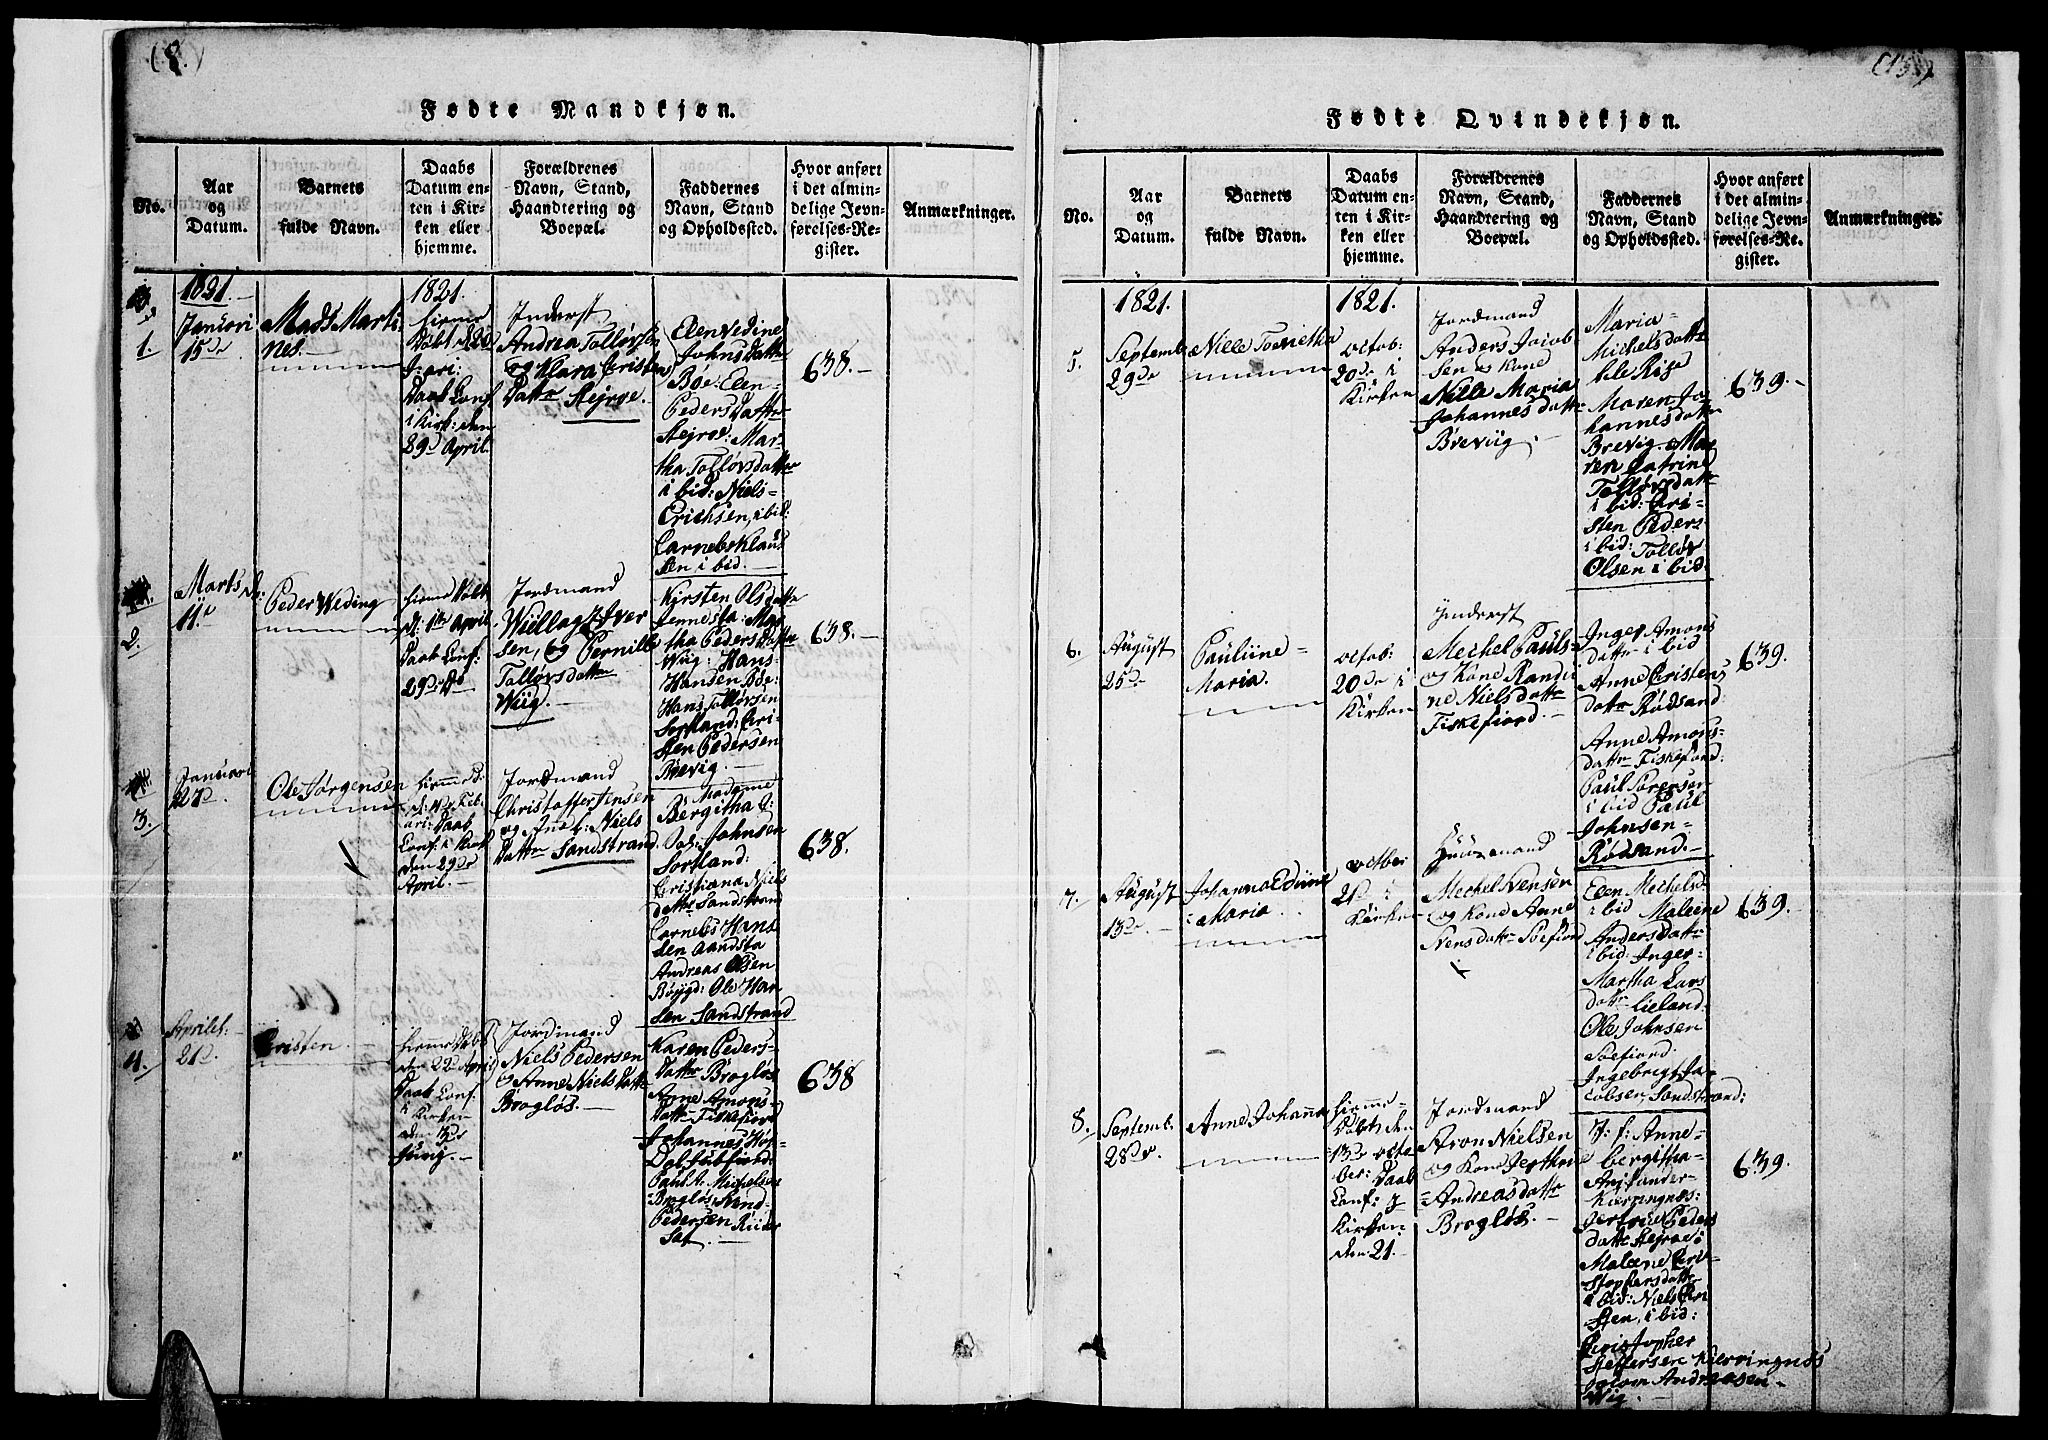 (8.)
Fødte Mandkjøn.
No.
Aar
og
Datum.
Barnets
fulde Navn.
Daabs
Datum en-
ten i Kir-
ken eller
hjemme.
Forældrenes
Navn, Stand,
Haandtering og
Boepæl.
Faddernes
Navn, Stand
og Opholdssted.
Hvor anført
i det almin-
delige Jevn-
førelses-Re-
gister.
Anmærkninger.
1.
1821.
Januari
15de
Mads Marti-
nes.
1821.
hieme
Døbt d. 20
Daab Conf
i Kirk: den
29d April
Inderst
Andrea Tolløvsen
og Klara Cristens
Dattr Stejroe.
Elen Vedine
Johns Datter
Bøe: Elen
Peders Datter
Stejroe: Mar-
tha Tolløvsdattr
i bid: Niels
Erichsen, i bid:
Carnebs Klau
sen i bid.
638.
2.
Marts
11te
Peder Weding
hieme Døbt
d: 1te April
Daab Conf:
29de Do
Jordmand
Willags Iver
sen, og Pernille
Tolløvsdattr
Wiig.
Kirsten Olsdattr
Jennesta: Mar
tha Peders Dattr
Wiig: Hans
Hansen Bøe:
Hans Tolløvsen
Sortland: Cri-
sten Pedersen
Brevig.
638.
3.
Januari
27d.
Ole Jørgensen
Daab
Conf: i Kirk
den 29de
April.
Jordmand
Christoffer Jensen
og Ane C: Niels
Dattr Sandstrand.
Madamme
Bergitha
Johnsen
Sortland:
Cristiana Niels
dattr Sandstrand
Cornelis Hans
sen Aandsta
Andreas Olsen
Bøygd: Ole Han
sen Sandstrand
638.
4.
Aprilet:
21d.
Cristen.
hieme Døbt
den 22d April
Daab Conf.
i Kirken
den 3de
Juny.
Jordmand
Niels Pedersen
og Anne Niels Dattr
Brogløs.
Karen Peders
Dattr Brogløs
Anne Amons
Dattr Fiskefiord
Johannes Høi-
Dal
Paul A. Michelsen
Brogløs
Pedersen
638
Fødte Qvindekjøn.
No.
Aar
og
Datum.
Barnets
fulde Navn.
Daabs
Datum en-
ten i Kir-
ken eller
hjemme.
Forældrenes
Navn, Stand,
Haandtering og
Boepæl.
Faddernes
Navn, Stand
og Opholdssted.
Hvor anført
i det almin-
delige Jevn-
førelses-Re-
gister.
Anmærkninger.
5.
1821.
Septemb.
29de
Nille Torietha
1821.
octob:
20de i
Kirken
Jordmand
Anders Jacob
sen og Kone
Nille Maria
Johannes dattr
Breviig.
Maria
Michelsdattr
Maren Jo
hannesdattr
Brevig. Ma
ren Catrine
Tolløvsdattr
i bid: Cri-
sten Peders
i bid: Tolløv
Olsen i bid:
639.
6.
August
25de
Pauline
Maria.
octob:
20de i
Kirken
Inderst
Mechel Pauls-
og Kone Randi
ne Niels dattr
Fiskefiord.
Inger Amons
dattr i bid
Anne Cristens
dattr Rødsand:
Anne Amons
dattr Fiskefiord:
Paul Sørensen
i bid Paul
Johnsen
Rødsand.
639.
7.
August
13de.
Johanna Ediine
Maria
octbe:
21de i
Kirken
Huusmand
Mechel Svensen
og Kone Anne
Svens dattr Soefiord
Elen Mechelsd
i bid Maleine
Anders Dattr
i bid: Inger
Martha Lars
dattr Lieland
Ole Johnsen
Soefiord:
Ingebrigt Ja-
cobsen, Sandstrand:
639.
8.
Septemb.
28de.
Anne Johanna
hiemme
Døbt den
13de octo
ber: Daab
Conf: i
Kirken
den 21.
Jordmand
Aron Nielsen
og Kone
Andreasdattr
Brogløs.
J: f: Anne
bergitha
Kierringnøs:
Peders
dattr Stejroe:
Maleene Cri-
stophersdattr
i bid: Niels Cri
sten, i bid:
Cristopher
Steffersen Kierringnøs
Salom Andreasen
Wig.
639.